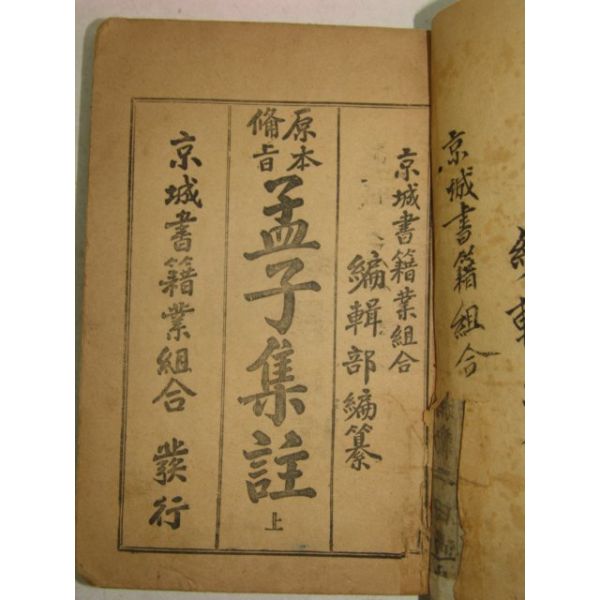 京城書籍業組合
編輯部編纂
原本
備旨
孟子集註
上
京城書籍業組合 發行
京城書籍組合